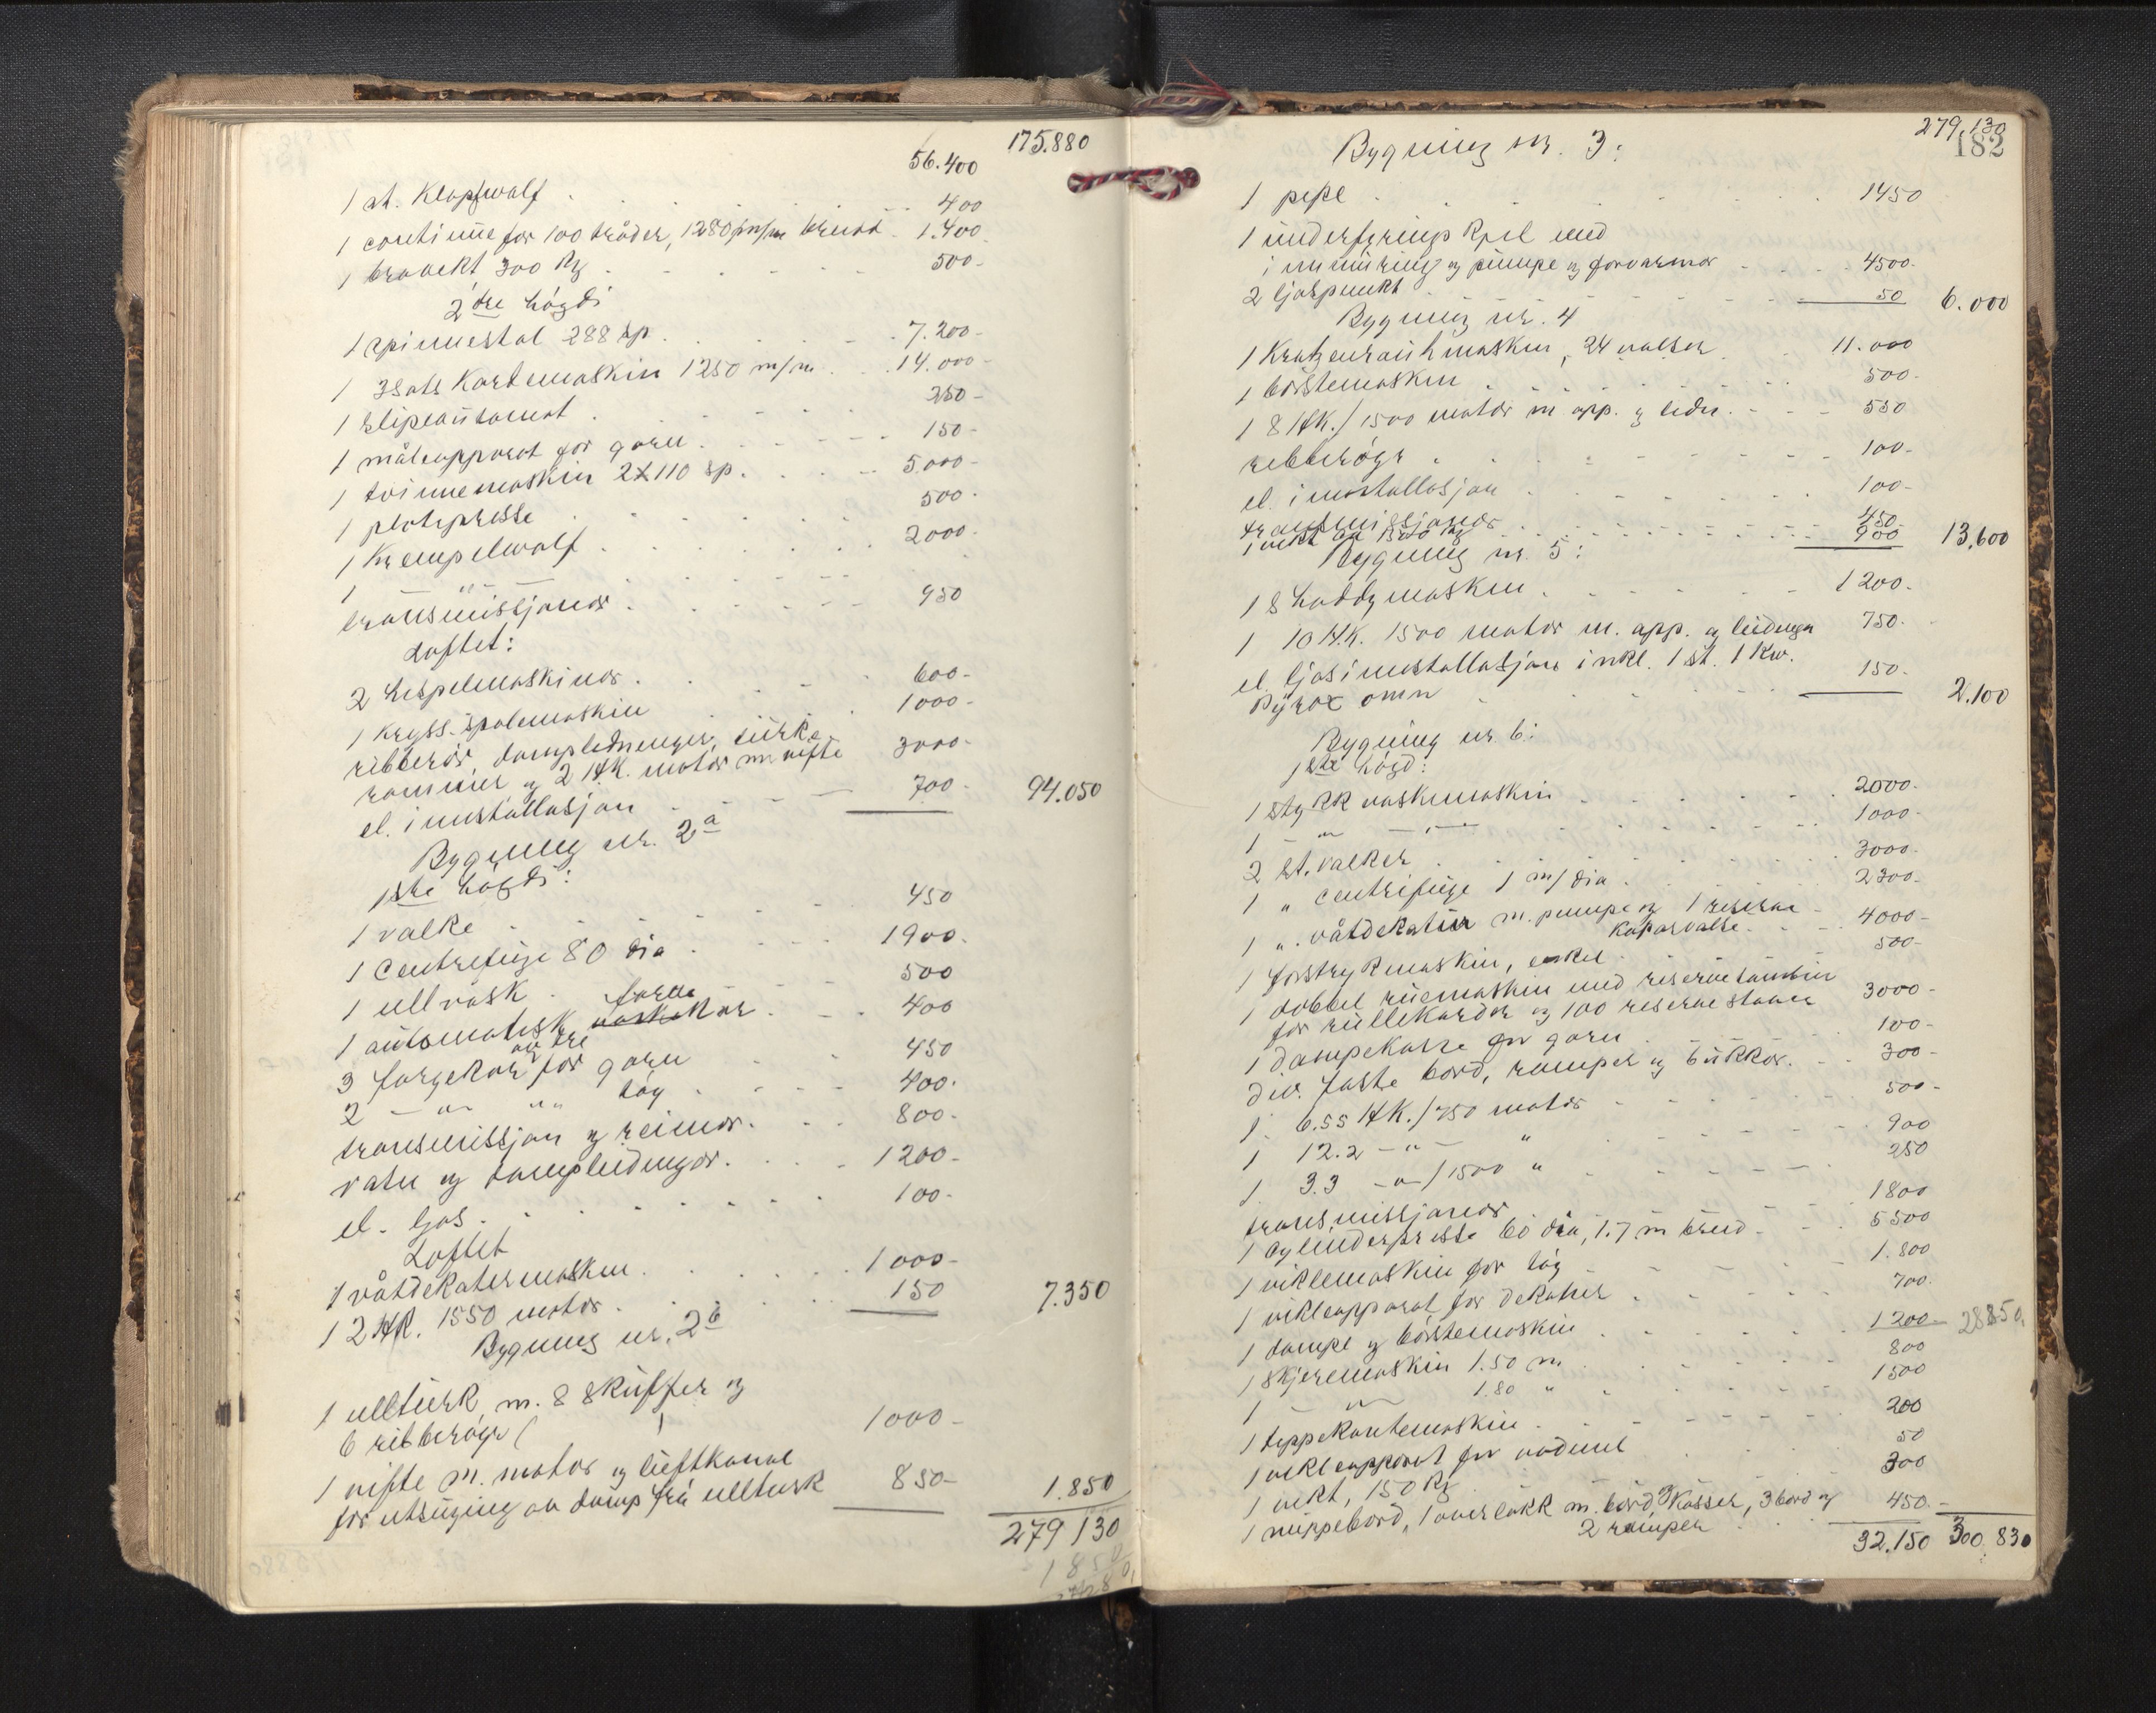 175.880
56.400
1 st. Klopfwolf . . . . 400
1 continue for 100 tråder, 1280 m/m breidd . 1.400
1 brovekt 300 kg . . . . 500-
2dre högdi
1 spinnestol 288 sp. . . . 7.200-
1 3sats Kardemaskin 1250 m/m . . . 14.000-
1 slipeautomat . . . . 250-
1 måleapparat for garn . . . . 150-
1 tvinnemaskin 2x110 sp. . . . 5.000-
1 plotepresse . . . . 500-
1 Krempelwolf . . . . 2000-
1 — " —
transmissjonar . . . . 950
Loftet:
2 hespelmaskinor . . . . 600-
1 kryss-spolemaskin . . . 1000-
ribberör, dampledninger, turke
rammer og 2 HK. motor m vifte 3000-
el. innstallasjon . . . 700- 94.050
Bygning nr. 2a
1ste högdi:
1 valke . . . . 450
1 Centrefuge 80 dia . . . . 1900-
1 ullvask . . . . 500
1 automatisk farge kar . . . 400
3 fargekar av tre for garn . . 450
2 — " — " " tøy . . . . 400-
transmissjon og reimar . . . 800-
vatn og dampleidningar . . . 1200-
el. ljos . . . . 100-
Loftet
1 våtdekatermaskin . . . . 1000-
1 2 HK. 1550 motor . . . . 150 7.350
Bygning nr. 2b
1 ullturk m. 8 skuffer og
6 ribberöyr 1000-
1 vifte m. motor og luftkanal
for utsuging av damp frå ullturk 850- 1.850
279 130
1 850
279.130
182
Bygning nr. 3:
1 pipe . . . . 1450
1 underfyrings kjel med
innmuring og pumpe og forvarmar . . . 4500-
2 ljospunkt . . . . 50 6.000
Bygning nr. 4
1 Kratzenrauhmaskin, 24 valser . . 11.000
1 börstemaskin . . . . 500-
1 8 HK./1500 motor m app. og ledn. . . . 550
ribberöyr . . . . 100-
el. innstallasjon . . . . 100-
transmissjonar . . . . 450
1 vekt . . . . 900 13,600
Bygning nr. 5:
1 Shoddymaskin . . . . 1200-
1 10 HK. 1500 motor m. app. og leidnger 750-
el. ljosinnstallasjon inkl. 1 st. 1 Kw.
Pyrox omn . . . . 150- 2.100
Bygning nr. 6:
1ste högd:
1 stykk vaskemaskin . . . . 2000-
1 — " — " — . . . . 1000-
2 st. valker . . . . 3000-
1 " centrifuge 1 m/dia . . . 2300-
1 " våtdekatur m. pumpe og 1 reserve
koparvalse . . . 4000-
1 forstrykmaskin, enkel . . . 500-
1 dobbel ruemaskin med reservetambur
for rullekarder og 100 reserve staver 3000-
1 dampekasse for garn . . . 100-
div. faste bord, ramper og bukkar . . . 300-
1 6.55 HK./750 motor . . . . 500-
1 12.2 — " — " . . . . 900
1 3.3 — " —/1500 " . . . . 250
transmissjonar . . . . 1800
1 Cylinderpresse 60 dia, 1.7 m breid . . 5500
1 viklemaskin for tøy . . . . 1.800
1 vikleapparat for dekatur . . . . 700-
1 dampe og börstemaskin . . . . 1200- 28850,
1 skjeremaskin 1.50 m . . . . 800
1 — " — 1.80 " . . . . 1500
1 teppekantemaskin . . . . 200
1 vikleapparat for vadmel . . . 50
1 vekt, 150 kg . . . . 300
1 nuppebord, 1 overlokk m. bord og kasser, 3 bord og
2 ramper . . . 450-
32.150 300.830